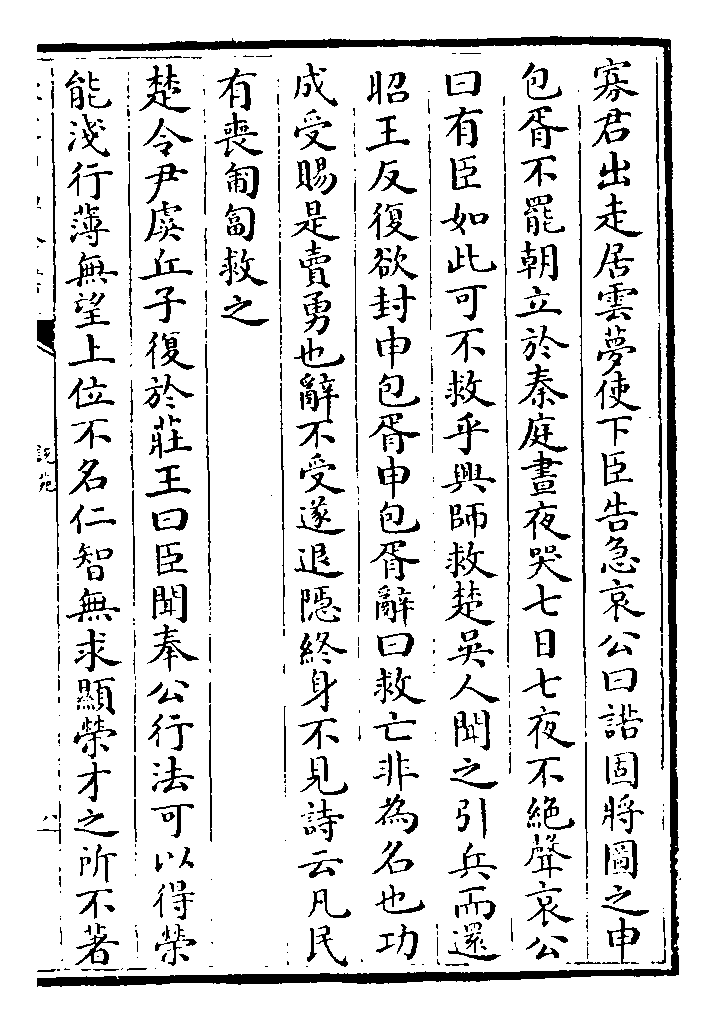 寡君出走居雲夢使下臣告急哀公曰諧固將圖之申
包胥不罷朝立於秦庭晝夜哭七日七夜不絶聲哀公
曰有臣如此可不救乎興師救楚吳人聞之引兵而還
昭王反復欲封申包胥申包胥辭曰救亡非為名也功
成受賜是賣勇也辭不受遂退隠終身不見詩云凡民
有喪匍匐救之
楚令尹虞丘子復於莊王曰臣聞奉公行法可以得榮
能淺行薄無望上位不名仁智無求顯榮才之所不著
說苑